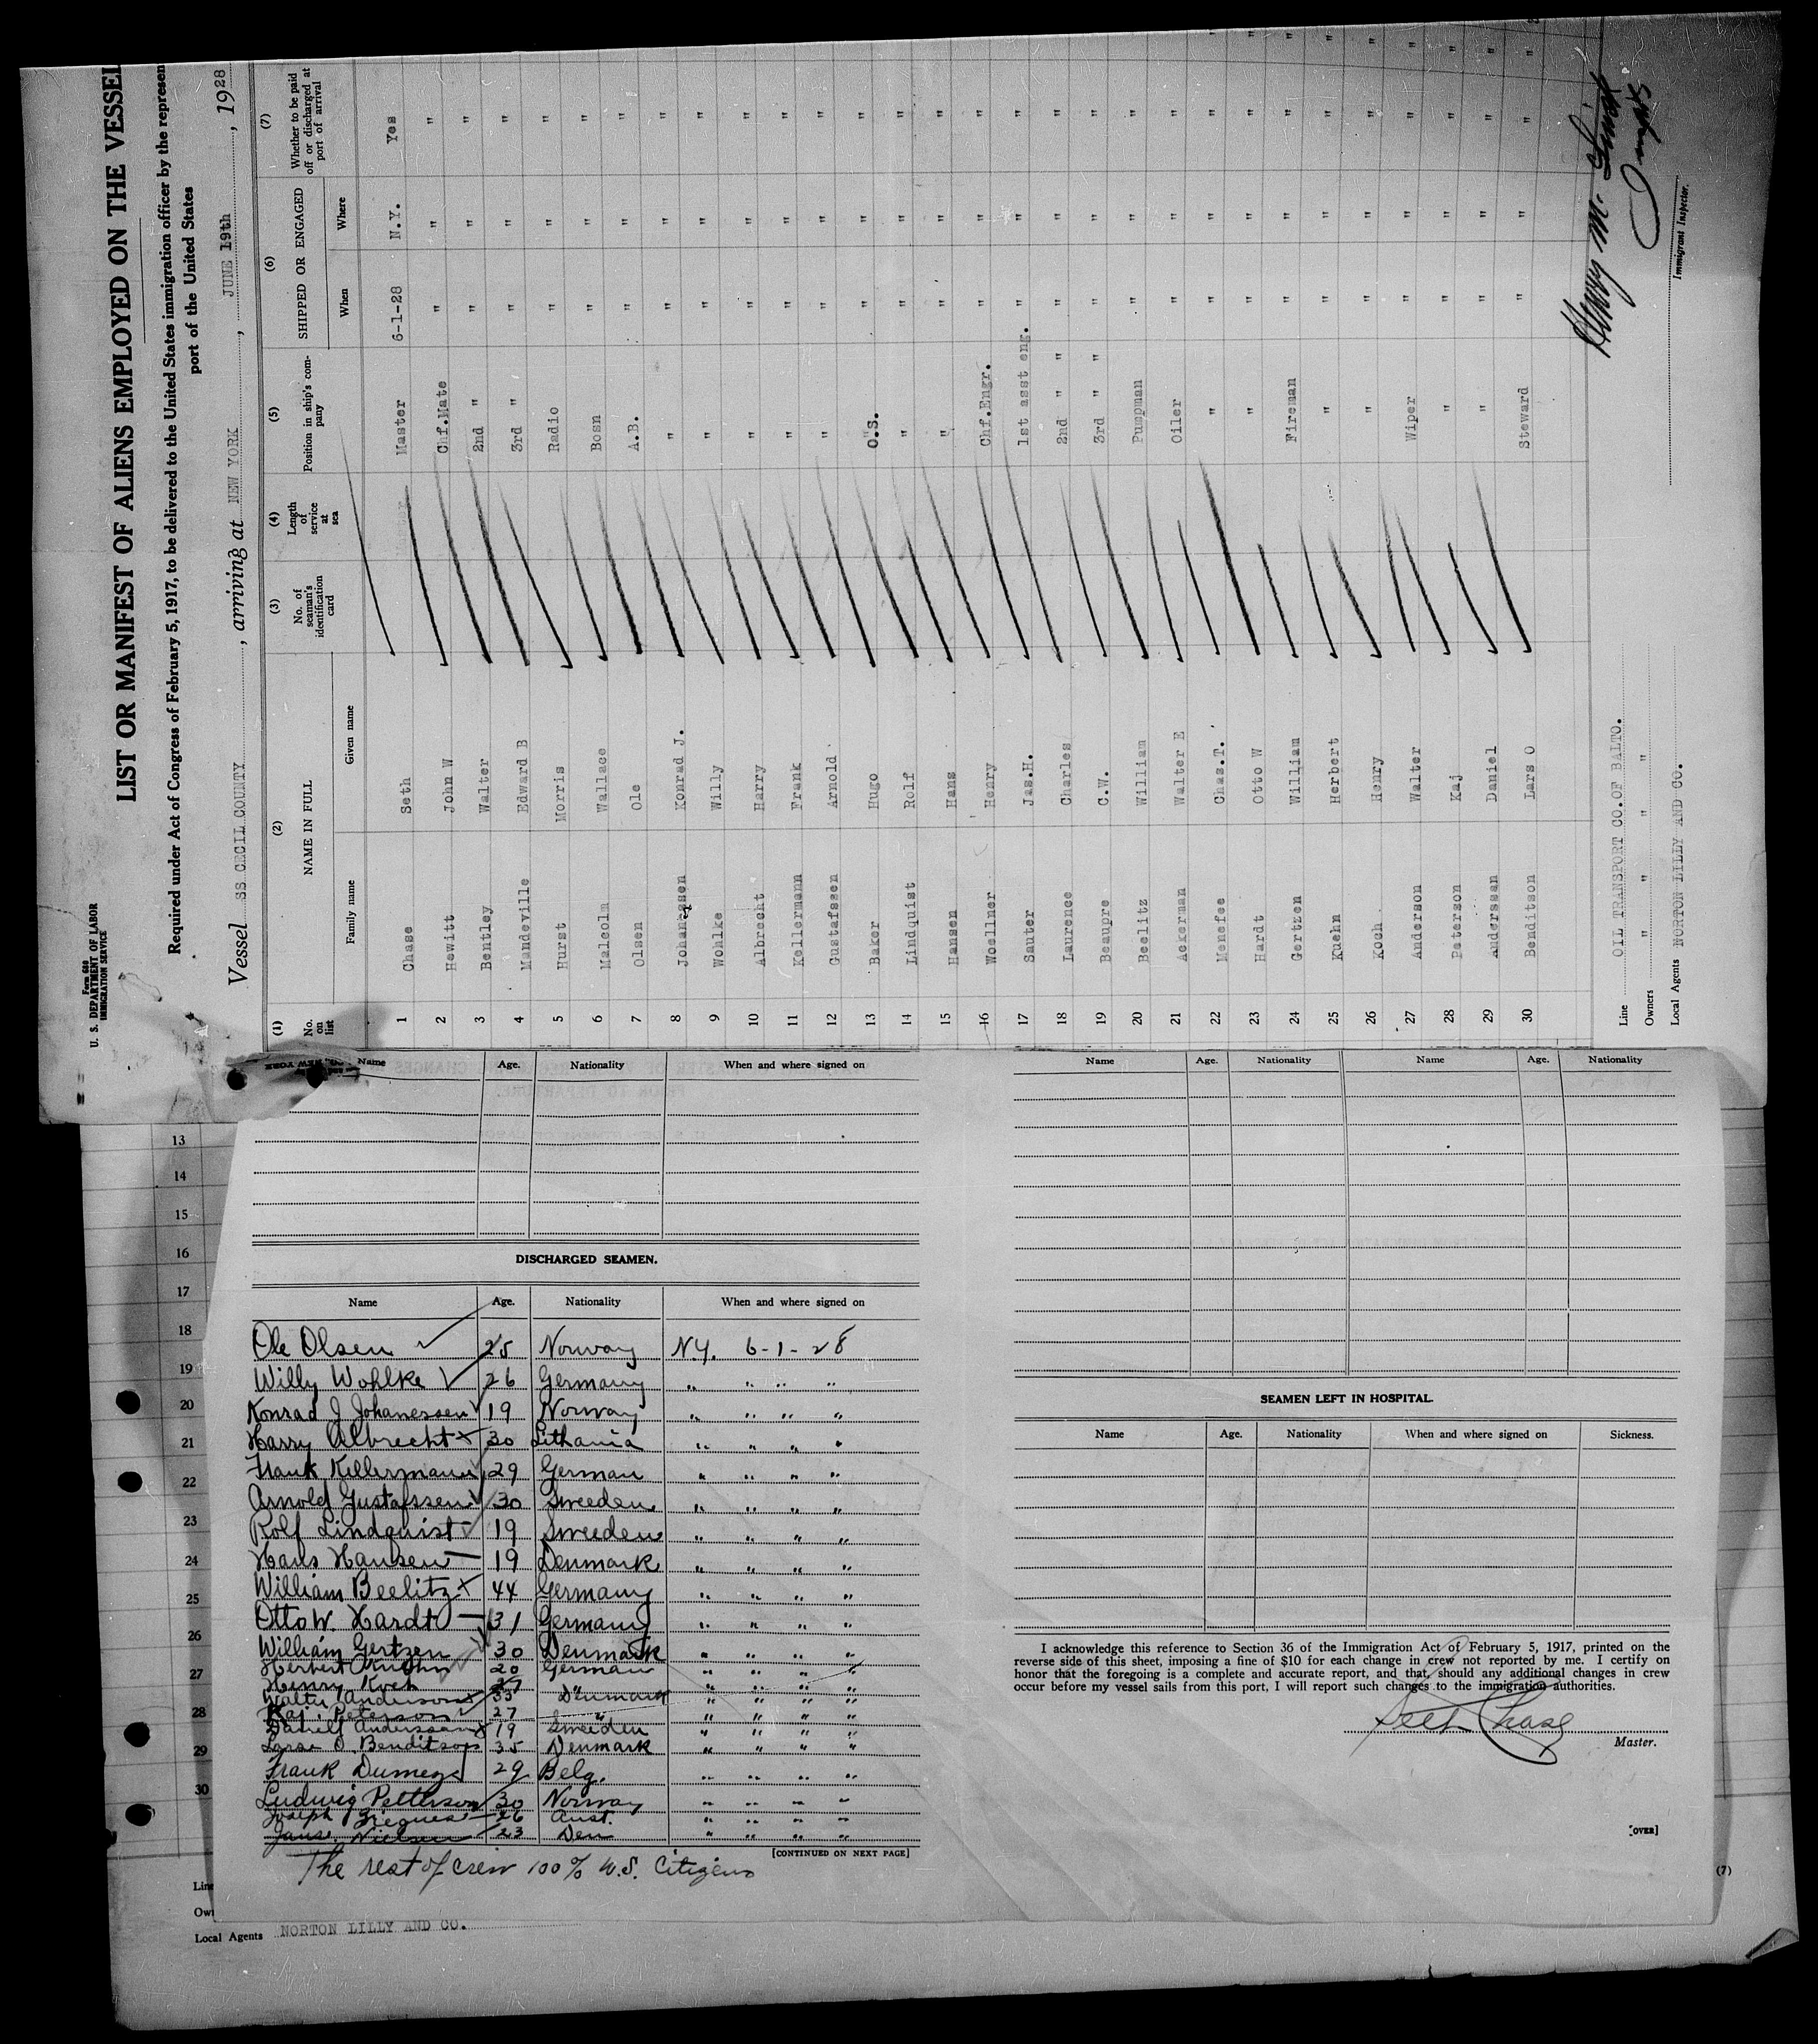 Form 680
U. S. DEPARTMENT OF LABOR
IMMIGRATION SERVICE
LIST OR MANIFEST OF ALIENS EMPLOYED ON THE VESSEL
Required under Act of Congress of February 5, 1917, to be delivered to the United States immigration officer by the represen
port of the United States
Vessel SS CECIL COUNTY, arriving at NEW YORK, JUNE 19th, 1928
(1) (2) (3) (4) (5) (6) (7)
No. on list NAME IN FULL No. of seaman's identification card Length of service at sea Position in ship's company SHIPPED OR ENGAGED Whether to be paid off or discharged at port of arrival
Family name Given name When Where
1 Chase Seth Master 6-1-28 N.Y. Yes
2 Hewitt John W Chf.Mate " " "
3 Bentley Walter 2nd " " " "
4 Mandeville Edward B 3rd " " " "
5 Hurst Morris Radio " " "
6 Malcolm Wallace Bosn " " "
7 Olsen Ole A.B. " " "
8 Johanessen Konrad J. " " " "
9 Wohlke Willy " " " "
10 Albrecht Harry " " " "
11 Kellermann Frank " " " "
12 Gustafssen Arnold " " " "
13 Baker Hugo O.S. " " "
14 Lindquist Rolf " " " "
15 Hansen Hans " " " "
16 Woellner Henry Chf.Engr. " " "
17 Sauter Jas.H. 1st asst eng. " " "
18 Laurence Charles 2nd " " " " "
19 Beaupre C.W. 3rd " " " " "
20 Beelitz William Pumpman " " "
21 Ackerman Walter E Oiler " " "
22 Menefee Chas.T. " " " "
23 Hardt Otto W " " " "
24 Gertzen William Fireman " " "
25 Kuehn Herbert " " " "
26 Koch Henry " " " "
27 Anderson Walter Wiper " " "
28 Peterson Kaj " " " "
29 Anderssen Daniel " " " "
30 Benditson Lars O Steward " " "
Line OIL TRANSPORT CO.OF BALTO.
Owners " " " "
Local Agents NORTON LILLY AND CO.
Henry M.
Immigrant Inspector.
Name Age. Nationality When and where signed on
DISCHARGED SEAMEN.
Name Age. Nationality When and where signed on
Ole Olsen 25 Norway N.Y. 6-1-28
Willy Wohlke 26 Germany " " " "
Konrad J Johanessen 19 Norway " " " "
Harry Albrecht 30 Lithania " " " "
Frank Kellermann 29 German " " " "
Arnold Gustafssen 30 Sweeden " " " "
Rolf Lindquist 19 Sweeden " " " "
Hans Hansen 19 Denmark " " " "
William Beelitz 44 Germany " " " "
Otto W. Hardt 31 Germany " " " "
William Gertzen 30 Denmark " " " "
Herbert Kuehn 20 German " " " "
Henry Koch 27
Walter Anderson 35 Denmark " " " "
Kaj Peterson 27 " " " " "
Daniel Anderssen 19 Sweeden " " " "
Lars O. Benditson 35 Denmark " " " "
Frank Dumez 29 Belg. " " " "
Ludwig Petterson 30 Norway " " " "
Joseph 26 Aust. " " " "
Jans. Nielsen 23 Den " " " "
[CONTINUED ON NEXT PAGE]
The rest of crew 100% U.S. Citizens
Name Age. Nationality Name Age. Nationality
SEAMEN LEFT IN HOSPITAL.
Name Age. Nationality When and where signed on Sickness.
I acknowledge this reference to Section 36 of the Immigration Act of February 5, 1917, printed on the
reverse side of this sheet, imposing a fine of $10 for each change in crew not reported by me. I certify on
honor that the foregoing is a complete and accurate report, and that, should any additional changes in crew
occur before my vessel sails from this port, I will report such changes to the immigration authorities.
Seth Chase
Master.
[OVER]
(7)
13
14
15
16
17
18
19
20
21
22
23
24
25
26
27
28
29
30
Line
Own
Local Agents NORTON LILLY AND CO.